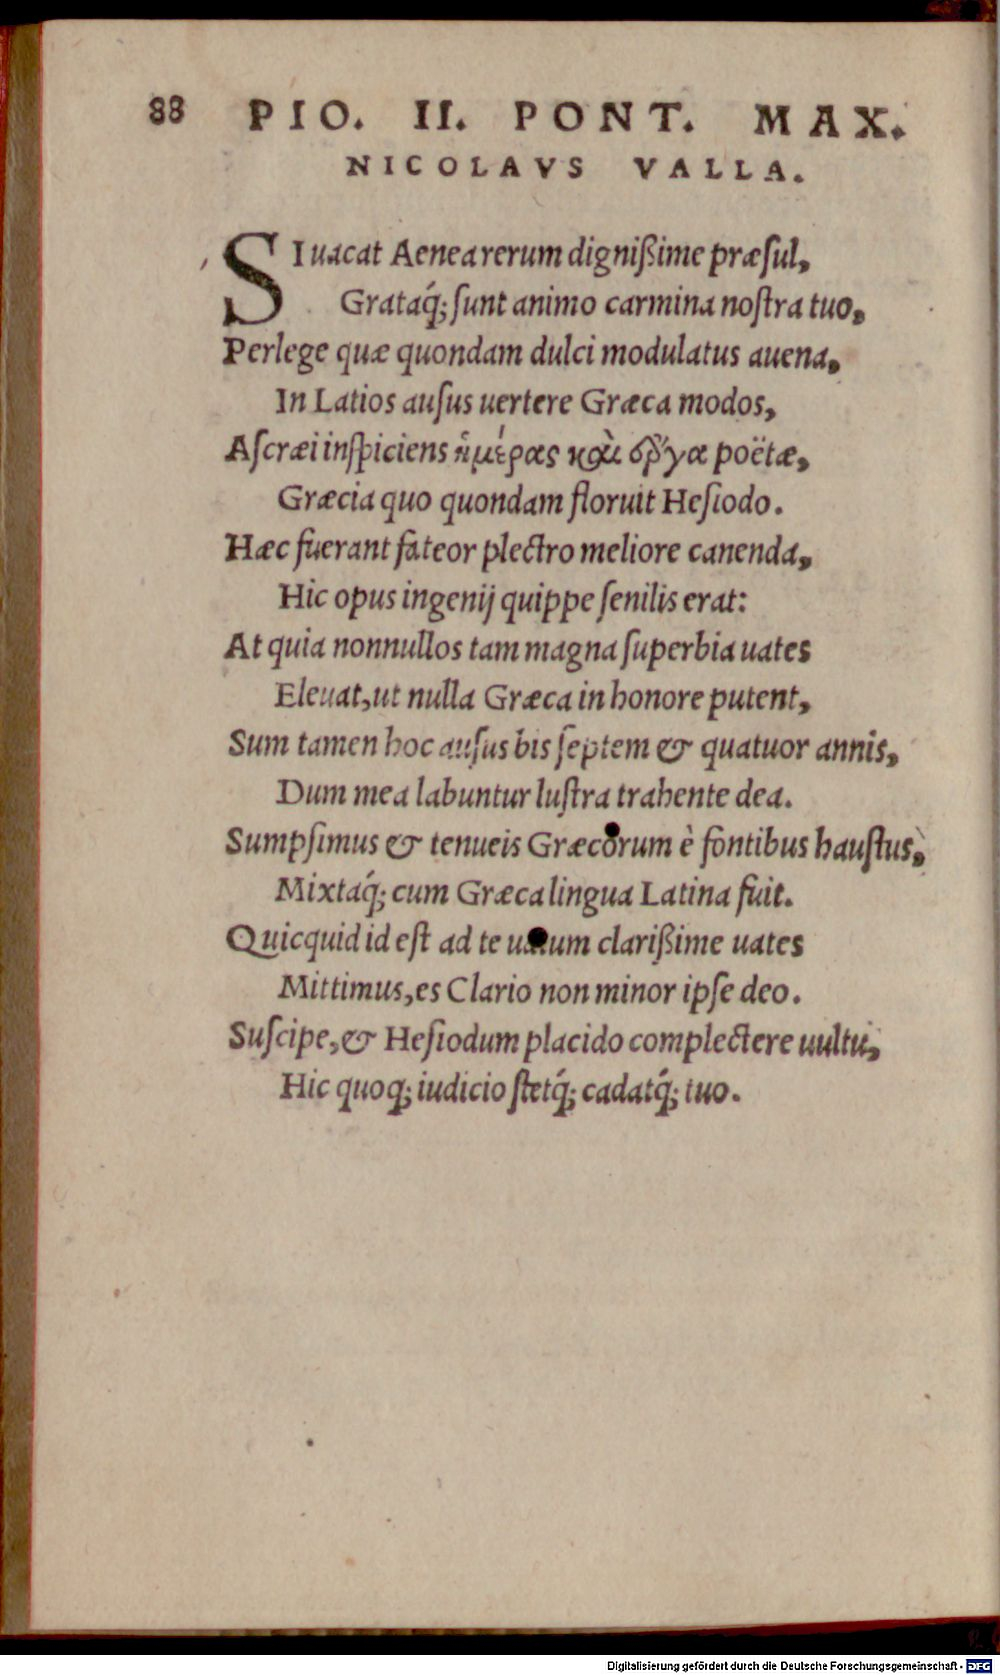 88 PIO. II. PONT. MAX.
NICOLAVS VALLA.
SI uacat Aenea rerum digniſſime præſul,
Grataq́; ſunt animo carmina noſtra tuo,
Perlege quæ quondam dulci modulatus auena,
In Latios auſus uertere Græca modos,
Aſcræi inſpiciens ἡμέρας καὶ ἔργα poëtæ,
Græcia quo quondam floruit Heſiodo.
Hæc fuerant fateor plectro meliore canenda,
Hic opus ingenij quippe ſenilis erat:
At quia nonnullos tam magna ſuperbia uates
Eleuat, ut nulla Græca in honore putent,
Sum tamen hoc auſus bis ſeptem & quatuor annis,
Dum mea labuntur luſtra trahente dea.
Sumpſimus & tenueis Græcorum è fontibus hauſtus,
Mixtaq́; cum Græca lingua Latina fuit.
Quicquid id eſt ad te clariſſime uates
Mittimus, es Clario non minor ipſe deo.
Suſcipe, & Heſiodum placido complectere uultu,
Hic quoq; iudicio ſtetq́; cadatq́; tuo.
Digitalisierung gefördert durch die Deutsche Forschungsgemeinschaft - DFG